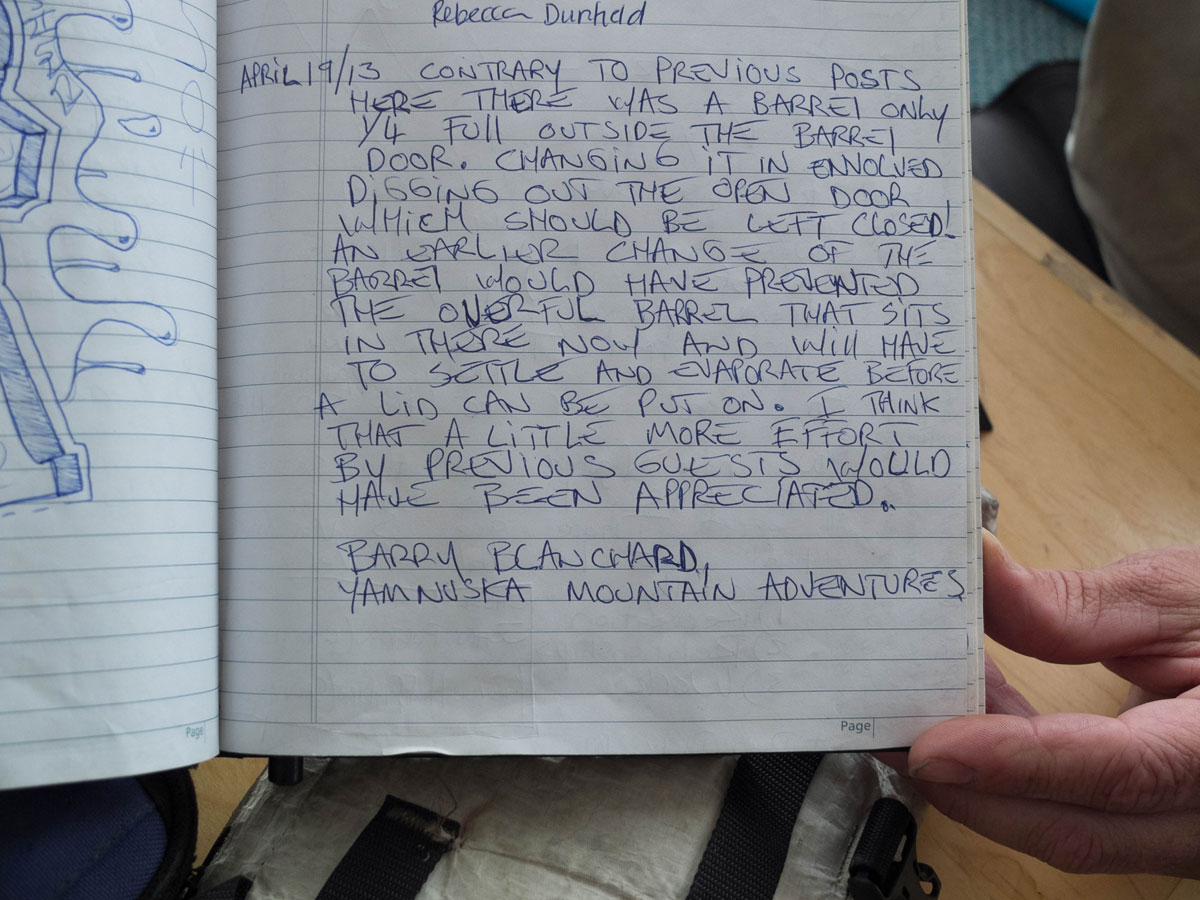 Rebecca Dunhad
APRIL 19/13 CONTRARY TO PREVIOUS POSTS
HERE THERE WAS A BARREL ONLY
1/4 FULL OUTSIDE THE BARREL
DOOR. CHANGING IT IN ENVOLVED
DIGGING OUT THE OPEN DOOR
WHICH SHOULD BE LEFT CLOSED!
AN EARLIER CHANGE OF THE
BARREL WOULD HAVE PREVENTED
THE OVERFUL BARREL THAT SITS
IN THERE NOW AND WILL HAVE
TO SETTLE AND EVAPORATE BEFORE
A LID CAN BE PUT ON. I THINK
THAT A LITTLE MORE EFFORT
BY PREVIOUS GUESTS WOULD
HAVE BEEN APPRECIATED.
BARRY BLANCHARD,
YAMNUSKA MOUNTAIN ADVENTURES
Page
Page